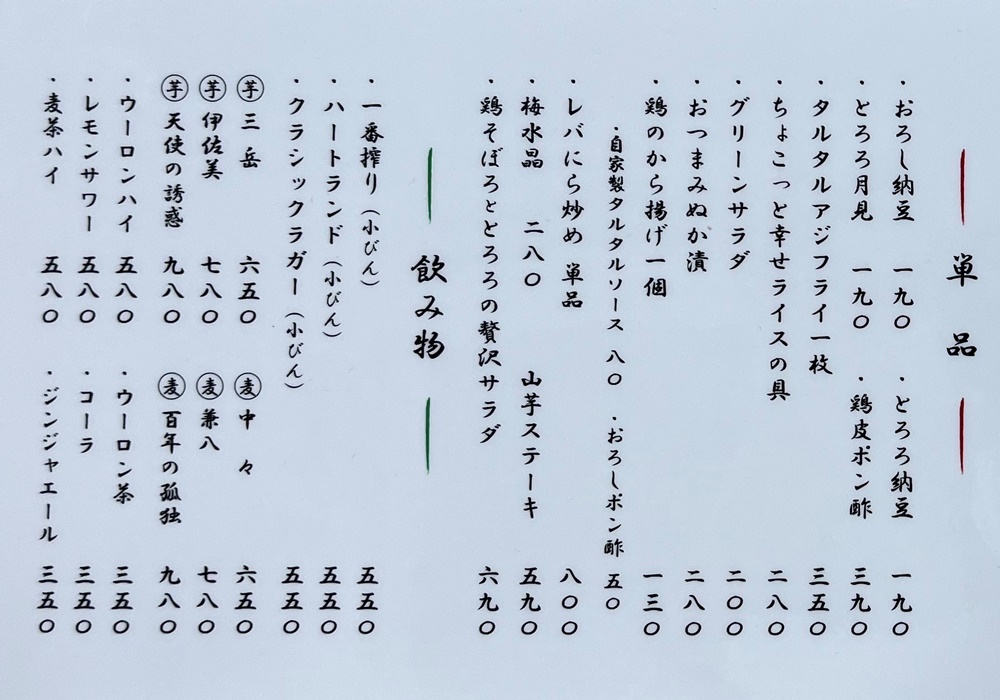 単品
・おろし納豆 一九〇 ・とろろ納豆 一九〇
・とろろ月見 一九〇 ・鶏皮ポン酢 三九〇
・タルタルアジフライ一枚 三五〇
・ちょこっと幸せライスの具 二八〇
・グリーンサラダ 二〇〇
・おつまみぬか漬 二八〇
・鶏のから揚げ一個 一三〇
・自家製タルタルソース 八〇 ・おろしポン酢 五〇
・レバにら炒め 単品 八〇〇
・梅水晶 二八〇 山芋ステーキ 五九〇
・鶏そぼろととろろの贅沢サラダ 六九〇
飲み物
・一番搾り(小びん) 五五〇
・ハートランド(小びん) 五五〇
・クラシックラガー(小びん) 五五〇
芋 三岳 六五〇 麦 中々 六五〇
芋 伊佐美 七八〇 麦 兼八 七八〇
芋 天使の誘惑 九八〇 麦 百年の孤独 九八〇
・ウーロンハイ 五八〇 ・ウーロン茶 三五〇
・レモンサワー 五八〇 ・コーラ 三五〇
・麦茶ハイ 五八〇 ・ジンジャエール 三五〇